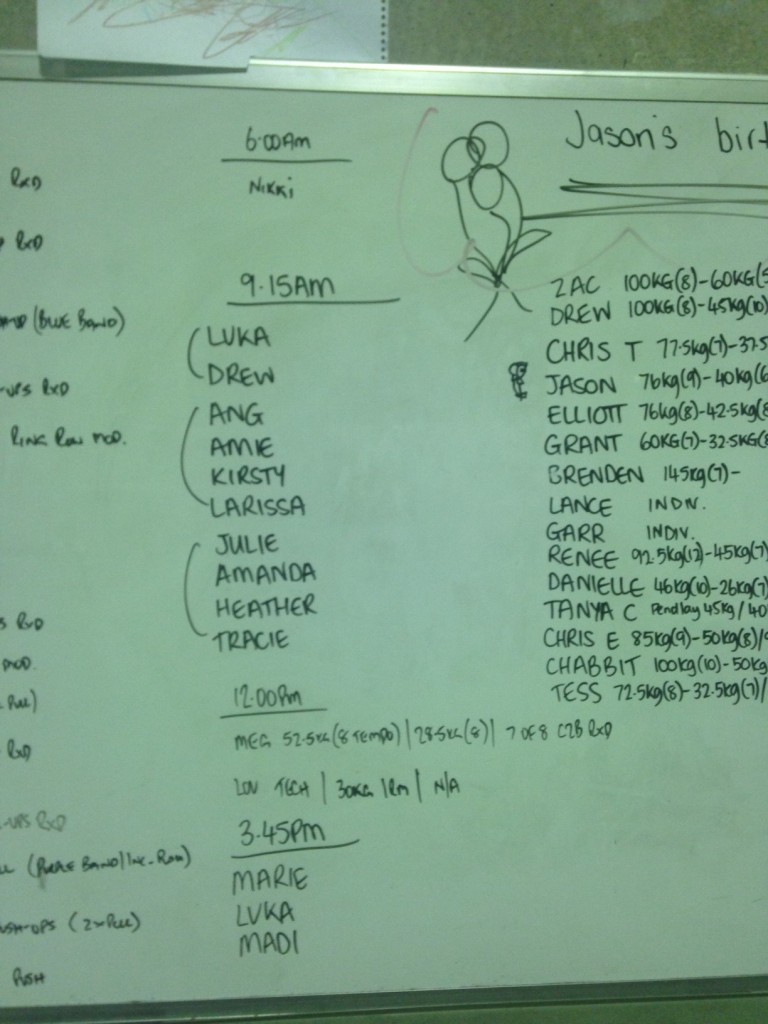 6:00Am
Nikki
RXD
RXD
(BLUE BAND)
-UPS RXD
RING ROW MOD.
RXD
MOD.
RXD
-UPS RXD
(PURPLE BAND/INC. ROW)
PUSH-UPS (2xPULL)
PUSH
9.15AM
LUKA
DREW
ANG
AMIE
KIRSTY
LARISSA
JULIE
AMANDA
HEATHER
TRACIE
12:00Pm
MEG 52.5KG (8 TEMPO) | 28.5KG (8) | 7 OF 8 C2B RXD
LOU TECH | 30KG 1RM | N/A
3.45PM
MARIE
LUKA
MADI
Jason's birt
ZAC 100KG(8)-60KG(5
DREW 100KG(8)-45kg(10)
CHRIS T 77.5kg(7)-37.5
JASON 76kg(9)-40kg(6
ELLIOTT 76kg(8)-42.5kg(8
GRANT 60KG(7)-32.5KG(8
BRENDEN 145kg(7)-
LANCE INDIV.
GARR INDIV.
RENEE 92.5kg(12)-45kg(7)
DANIELLE 46kg(10)-26kg(7)
TANYA C Pendlay 45kg/40
CHRIS E 85kg(9)-50kg(8)/
CHABBIT 100kg(10)-50kg
TESS 72.5kg(8)-32.5kg(7)/